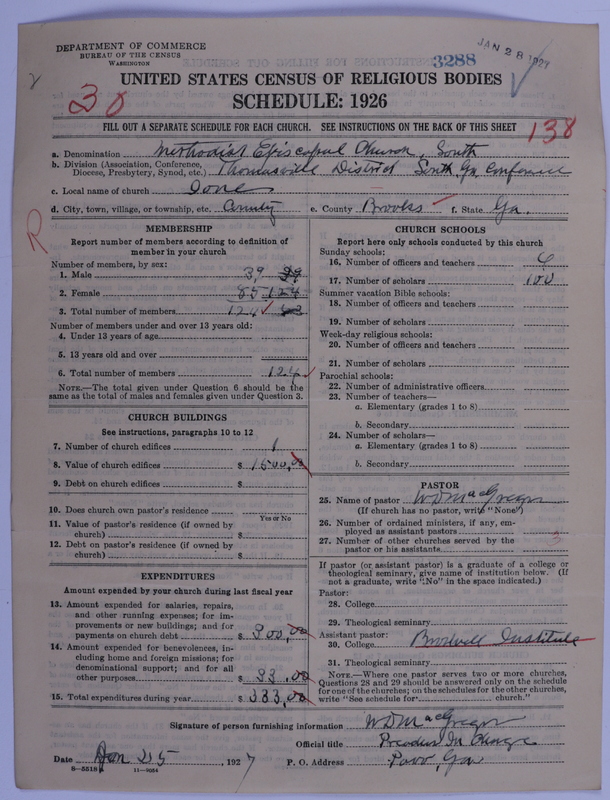 DEPARTMENT OF COMMERCE
BUREAU OF THE CENSUS
WASHINGTON
3288
JAN 28 1927
UNITED STATES CENSUS OF RELIGIOUS BODIES
SCHEDULE: 1926
30
138
FILL OUT A SEPARATE SCHEDULE FOR EACH CHURCH. SEE INSTRUCTIONS ON THE BACK OF THIS SHEET
a. Denomination Methodist Episcopal Church, South
b. Division (Association, Conference, Diocese, Presbytery, Synod, etc.) Thomasville District South Ga Conference
c. Local name of church
d. City, town, village, or township, etc. County e. County Brooks f. State Ga.
R
MEMBERSHIP
Report number of members according to definition of
member in your church
Number of members, by sex:
1. Male 39 39
2. Female 85 124
3. Total number of members 124
Number of members under and over 13 years old:
4. Under 13 years of age
5. 13 years old and over
6. Total number of members 124
NOTE.—The total given under Question 6 should be the
same as the total of males and females given under Question 3.
CHURCH BUILDINGS
See instructions, paragraphs 10 to 12
7. Number of church edifices 1
8. Value of church edifices $ 1500,00
9. Debt on church edifices $
10. Does church own pastor's residence
Yes or No
11. Value of pastor's residence (if owned by
church) $
12. Debt on pastor's residence (if owned by
church) $
EXPENDITURES
Amount expended by church during last fiscal year
13. Amount expended for salaries, repairs,
and other running expenses; for im-
provements or new buildings; and for
payments on church debt $ 300,00
14. Amount expended for benevolences, in-
cluding home and foreign missions; for
denominational support; and for all
other purposes $ 83.00
15. Total expenditures during year $ 383,00
CHURCH SCHOOLS
Report here only schools conducted by this church
Sunday schools:
16. Number of officers and teachers 6
17. Number of scholars 100
Summer vacation Bible schools:
18. Number of officers and teachers
19. Number of scholars
Week-day religious schools:
20. Number of officers and teachers
21. Number of scholars
Parochial schools:
22. Number of administrative officers
23. Number of teachers—
a. Elementary (grades 1 to 8)
b. Secondary
24. Number of scholars—
a. Elementary (grades 1 to 8)
b. Secondary
PASTOR
25. Name of pastor W D MacGregor
(If church has no pastor, write "None")
26. Number of ordained ministers, if any, em-
ployed as assistant pastors
27. Number of other churches served by the
pastor or his assistants 3
If pastor (or assistant pastor) is a graduate of a college or
theological seminary, give name of institution below. (If
not a graduate, write "No" in the space indicated.)
Pastor:
28. College
29. Theological seminary
Assistant pastor:
30. College Institute
31. Theological seminary
NOTE.—Where one pastor serves two or more churches,
Questions 28 and 29 should be answered only on the schedule
for one of the churches; on the schedules for the other churches,
write "See schedule for church."
Signature of person furnishing information W D MacGregor
Official title Preacher In Charge
Date Jan 25, 1927 P. O. Address Pavo, Ga
8—5518 11—9064